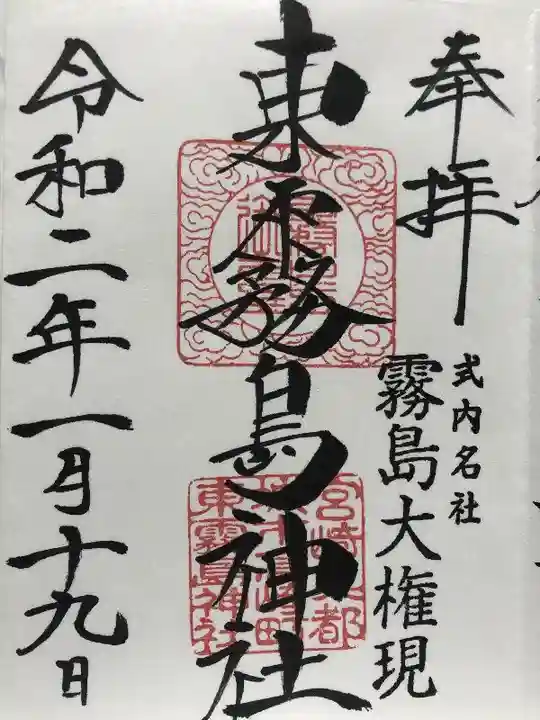 奉拝
式内名社
霧島大権現
東霧島神社
令和二年一月十九日
東霧島神社